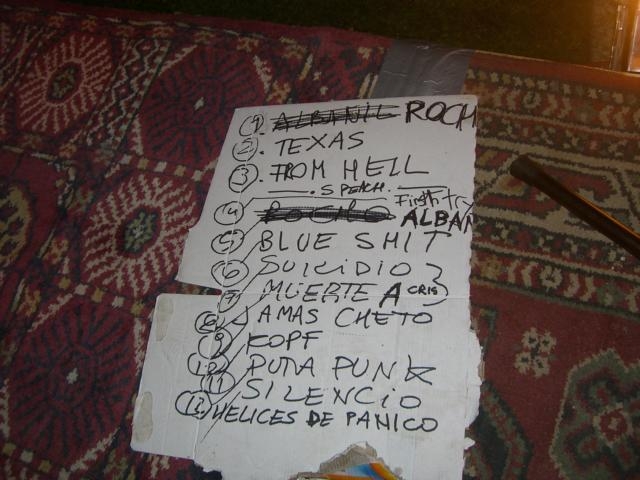 1 ALBANIL ROCH
2. TEXAS
3. FROM HELL
. SPEACH.
First try
4 ROCHO ALBAN
5 BLUE SHIT
6 SUICIDIO
7 MUERTE A CRIS
8 AMAS CHETO
9 KOPF
10 PUTA PUNK
11 SILENCIO
12. HELICES DE PANICO